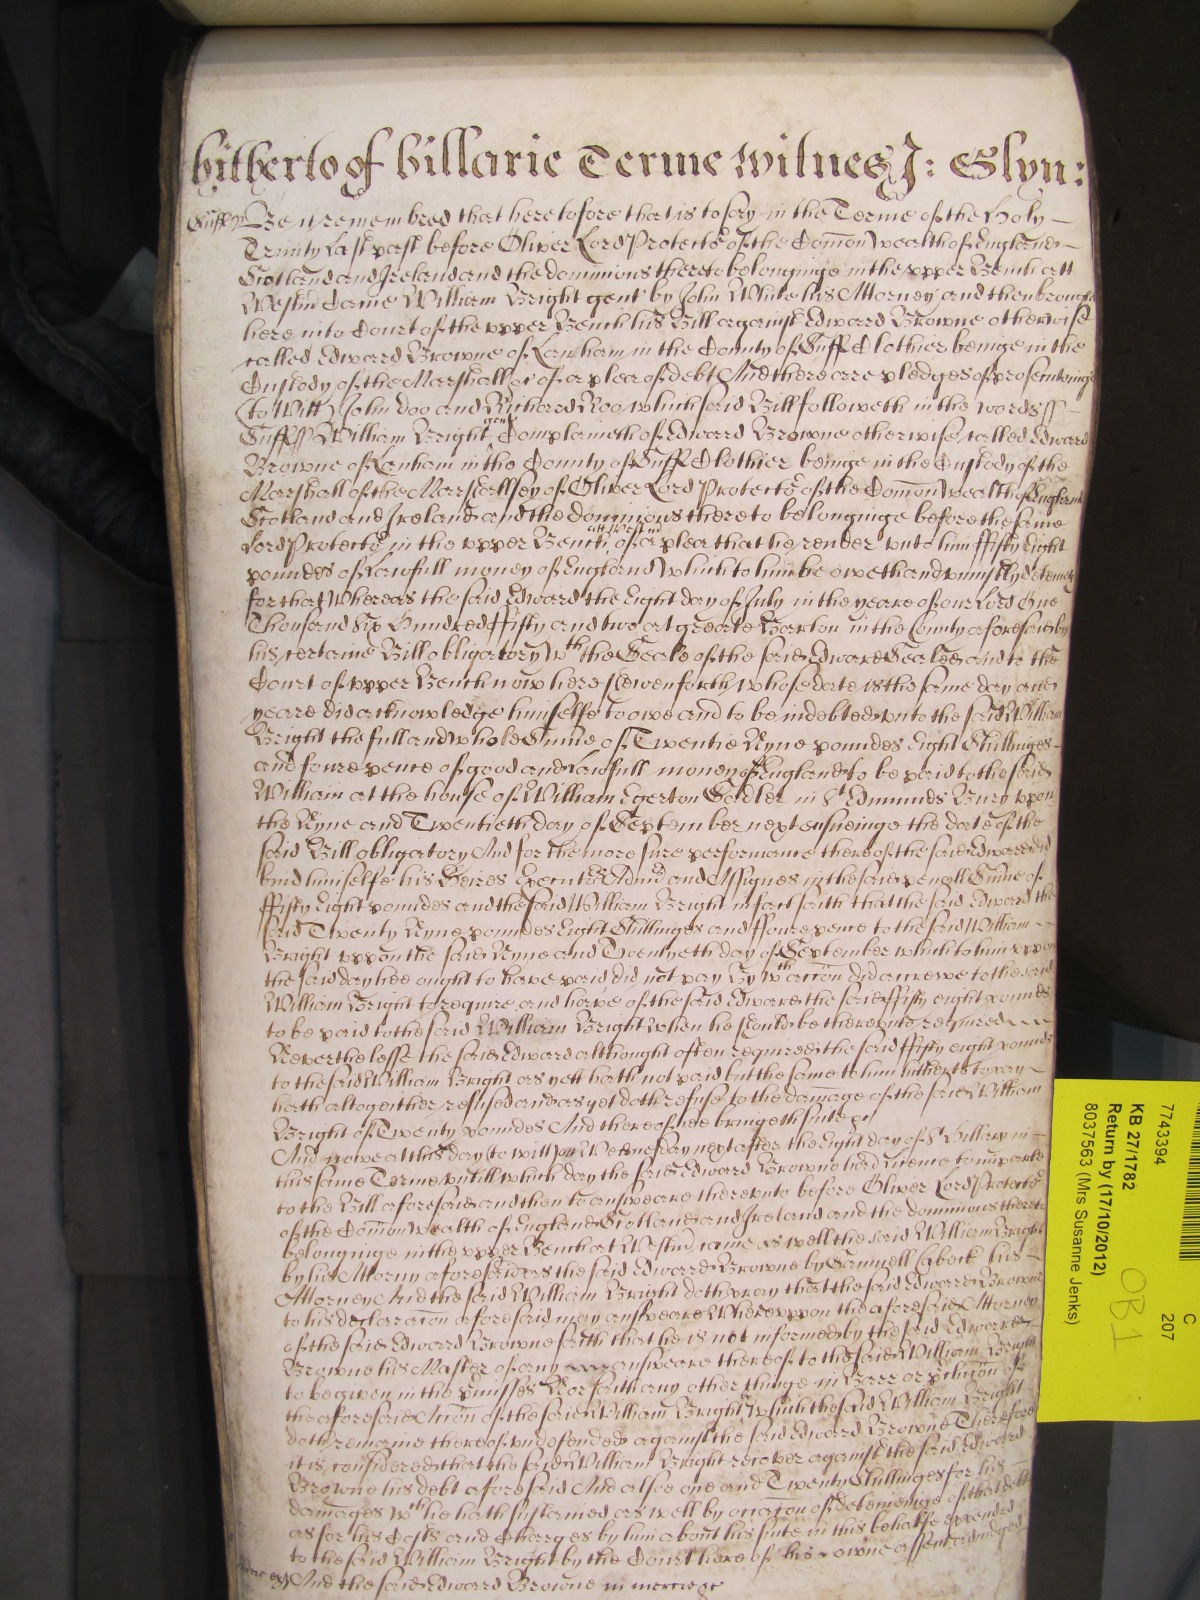 hitherto of hillarie Terme witnes J: Glyn:
Suff ss Be it remembred that heretofore that is to say in the Terme of the Holy
Trinity last past before Oliver Lord Protector of the Comon wealth of England
Scotland and Ireland and the dominions thereto belonginge in the upper Bench att
Westm Came William Bright gent by John White his Attorney and then brought
here into Court of the upper Bench his Bill against Edward Browne otherwise
called Edward Browne of Lanham in the County of Suff Clothier beinge in the
Custody of the Marshall &c of a plea of debt And there are pledges of prosecutinge
(to Witt) John doo and Richard Roo which said Bill followeth in these words ss
Suff ss William Bright gent Complaineth of Edward Browne otherwise called Edward
Browne of Lanham in the County of Suff Clothier beinge in the Custody of the
Marshall of the Marshallsey of Oliver Lord Protector of the Comon wealth of England
Scotland and Ireland and the dominions thereto belonginge before the same
Lord Protector in the upper Bench att Westm of a plea that he render unto him ffifty Eight
poundes of Lawfull money of England which to him he oweth and uniustly deteines
for that Whereas the said Edward the Eight day of July in the yeare of our Lord One
Thousand Six Hundred ffifty and two at greate Barton in the County aforesaid by
his certaine Bill obligatory wth the Seale of the said Edward Sealed and to the
Court of upper Bench now here shewen forth whose date is the same day and
yeare did acknowledge himselfe to owe and to be indebted unto the said William
Bright the full and whole Summe of Twentie Nyne poundes Eight Shillinges
and foure pence of good and Lawfull money of England to be paid to the said
William at the house of William Egerton Sadler in St Edmunds Bury upon
the Nyne and Twentieth day of September next ensueinge the date of the
said Bill obligatory And for the more sure performance thereof the said Edward did
bind himselfe his Heires Executrs Admrs and Assignes in the said penall Sume of
ffifty Eight poundes and the said William Bright in fact saith that the said Edward the
said Twenty Nyne poundes Eight Shillinges and ffoure pence to the said William
Bright uppon the said Nyne and Twentyeth day of September which to him uppon
the said day hee ought to have paid did not pay By wch accon did accrewe to the said
William Bright to require and have of the said Edward the said ffifty eight pounds
to be paid to the said William Bright when he should be thereunto required
Neverthelesse the said Edward althought often required the said ffifty eight pounds
to the said William Bright as yett hath not paid but the same to him hitherto to pay
hath altogeither refused and as yet doth refuse to the damage of the said William
Bright of Twenty poundes And thereof hee bringeth suite &c
And nowe at this day to witt on Wednesday next after the Eight day of St Hillary in
this same Terme untill which day the said Edward Browne had licence to imparle
to the Bill aforesaid and then to answeare thereunto before Oliver Lord Protector
of the Comon wealth of England Scotland and Ireland and the dominions thereto
belonginge in the upper Bench at Westm came as well the said William Bright
by his Attorny aforesaid as the said Edward Browne by Samuell his
Attorney And the said William Bright doth pray that the said Edward Browne
to his declaracon aforesaid may answeare Whereuppon the aforesaid Attorney
of the said Edward Browne saith that he is not informed by the said Edward
Browne his Master of any answeare thereof to the said William Bright
to be given in the pmisses Nor saith any other thinge in Barr or
the aforesaid Accon of the said William Bright which the said William Bright
doth remaine thereof undefended against the said Edward Browne Therefore
it is considered that the said William Bright recover against the said Edward
Browne his debt aforesaid And alsoe one and Twenty Shillinges for his
damages wch he hath sustained as well by occacon of deteininge of that debt
as for his Costs and Charges by him about his suite in this behalfe expended
to the said William Bright by the Court here of his owne assent adiudged
And the said Edward Browne in mercie &c
C
207
7743394
KB 27/1782
Return by (17/10/2012)
8037563 (Mrs Susanne Jenks)
OB1